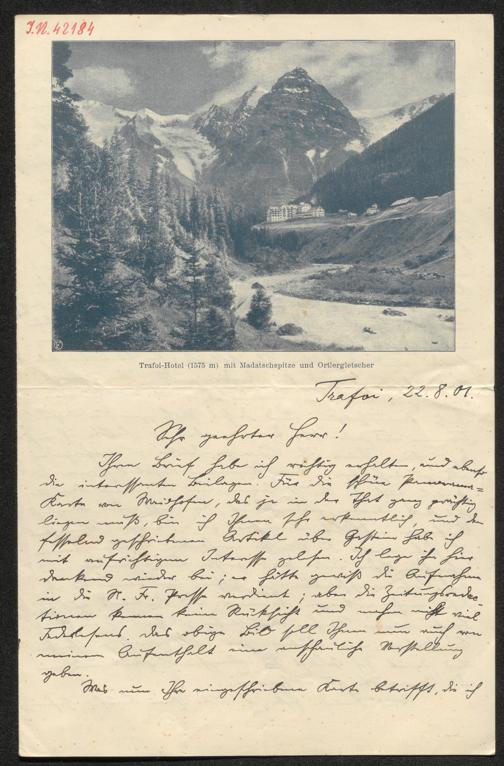 J.N. 42184
Trafoi-Hotel (1575 m) mit Madatschspitze und Ortlergletscher
Trafoi, 22.8.01.
Sehr geehrter Herr!
Ihren Brief habe ich richtig erhalten, und ebenso
die interessanten Beilagen. Für die schöne Panorama-
Karte von Waidhofen, das ja in der That ganz prächtig
liegen muß, bin ich Ihnen sehr erkenntlich, und den
fesselnd geschriebenen Artikel über Gastein hab ich
mit aufrichtigem Interesse gelesen. Ich lege ihn hier
dankend wieder bei; er hätte gewiß die Aufnahme
in die N. Fr. Presse verdient; aber die Zeitungsredac-
tionen kennen keine Rücksicht und nicht viel
Federlesens. Das obige Bild soll Ihnen nun auch von
meinem Aufenthalt eine anschauliche Vorstellung
geben.
Was nun Ihre eingeschriebene Karte betrifft, die ich